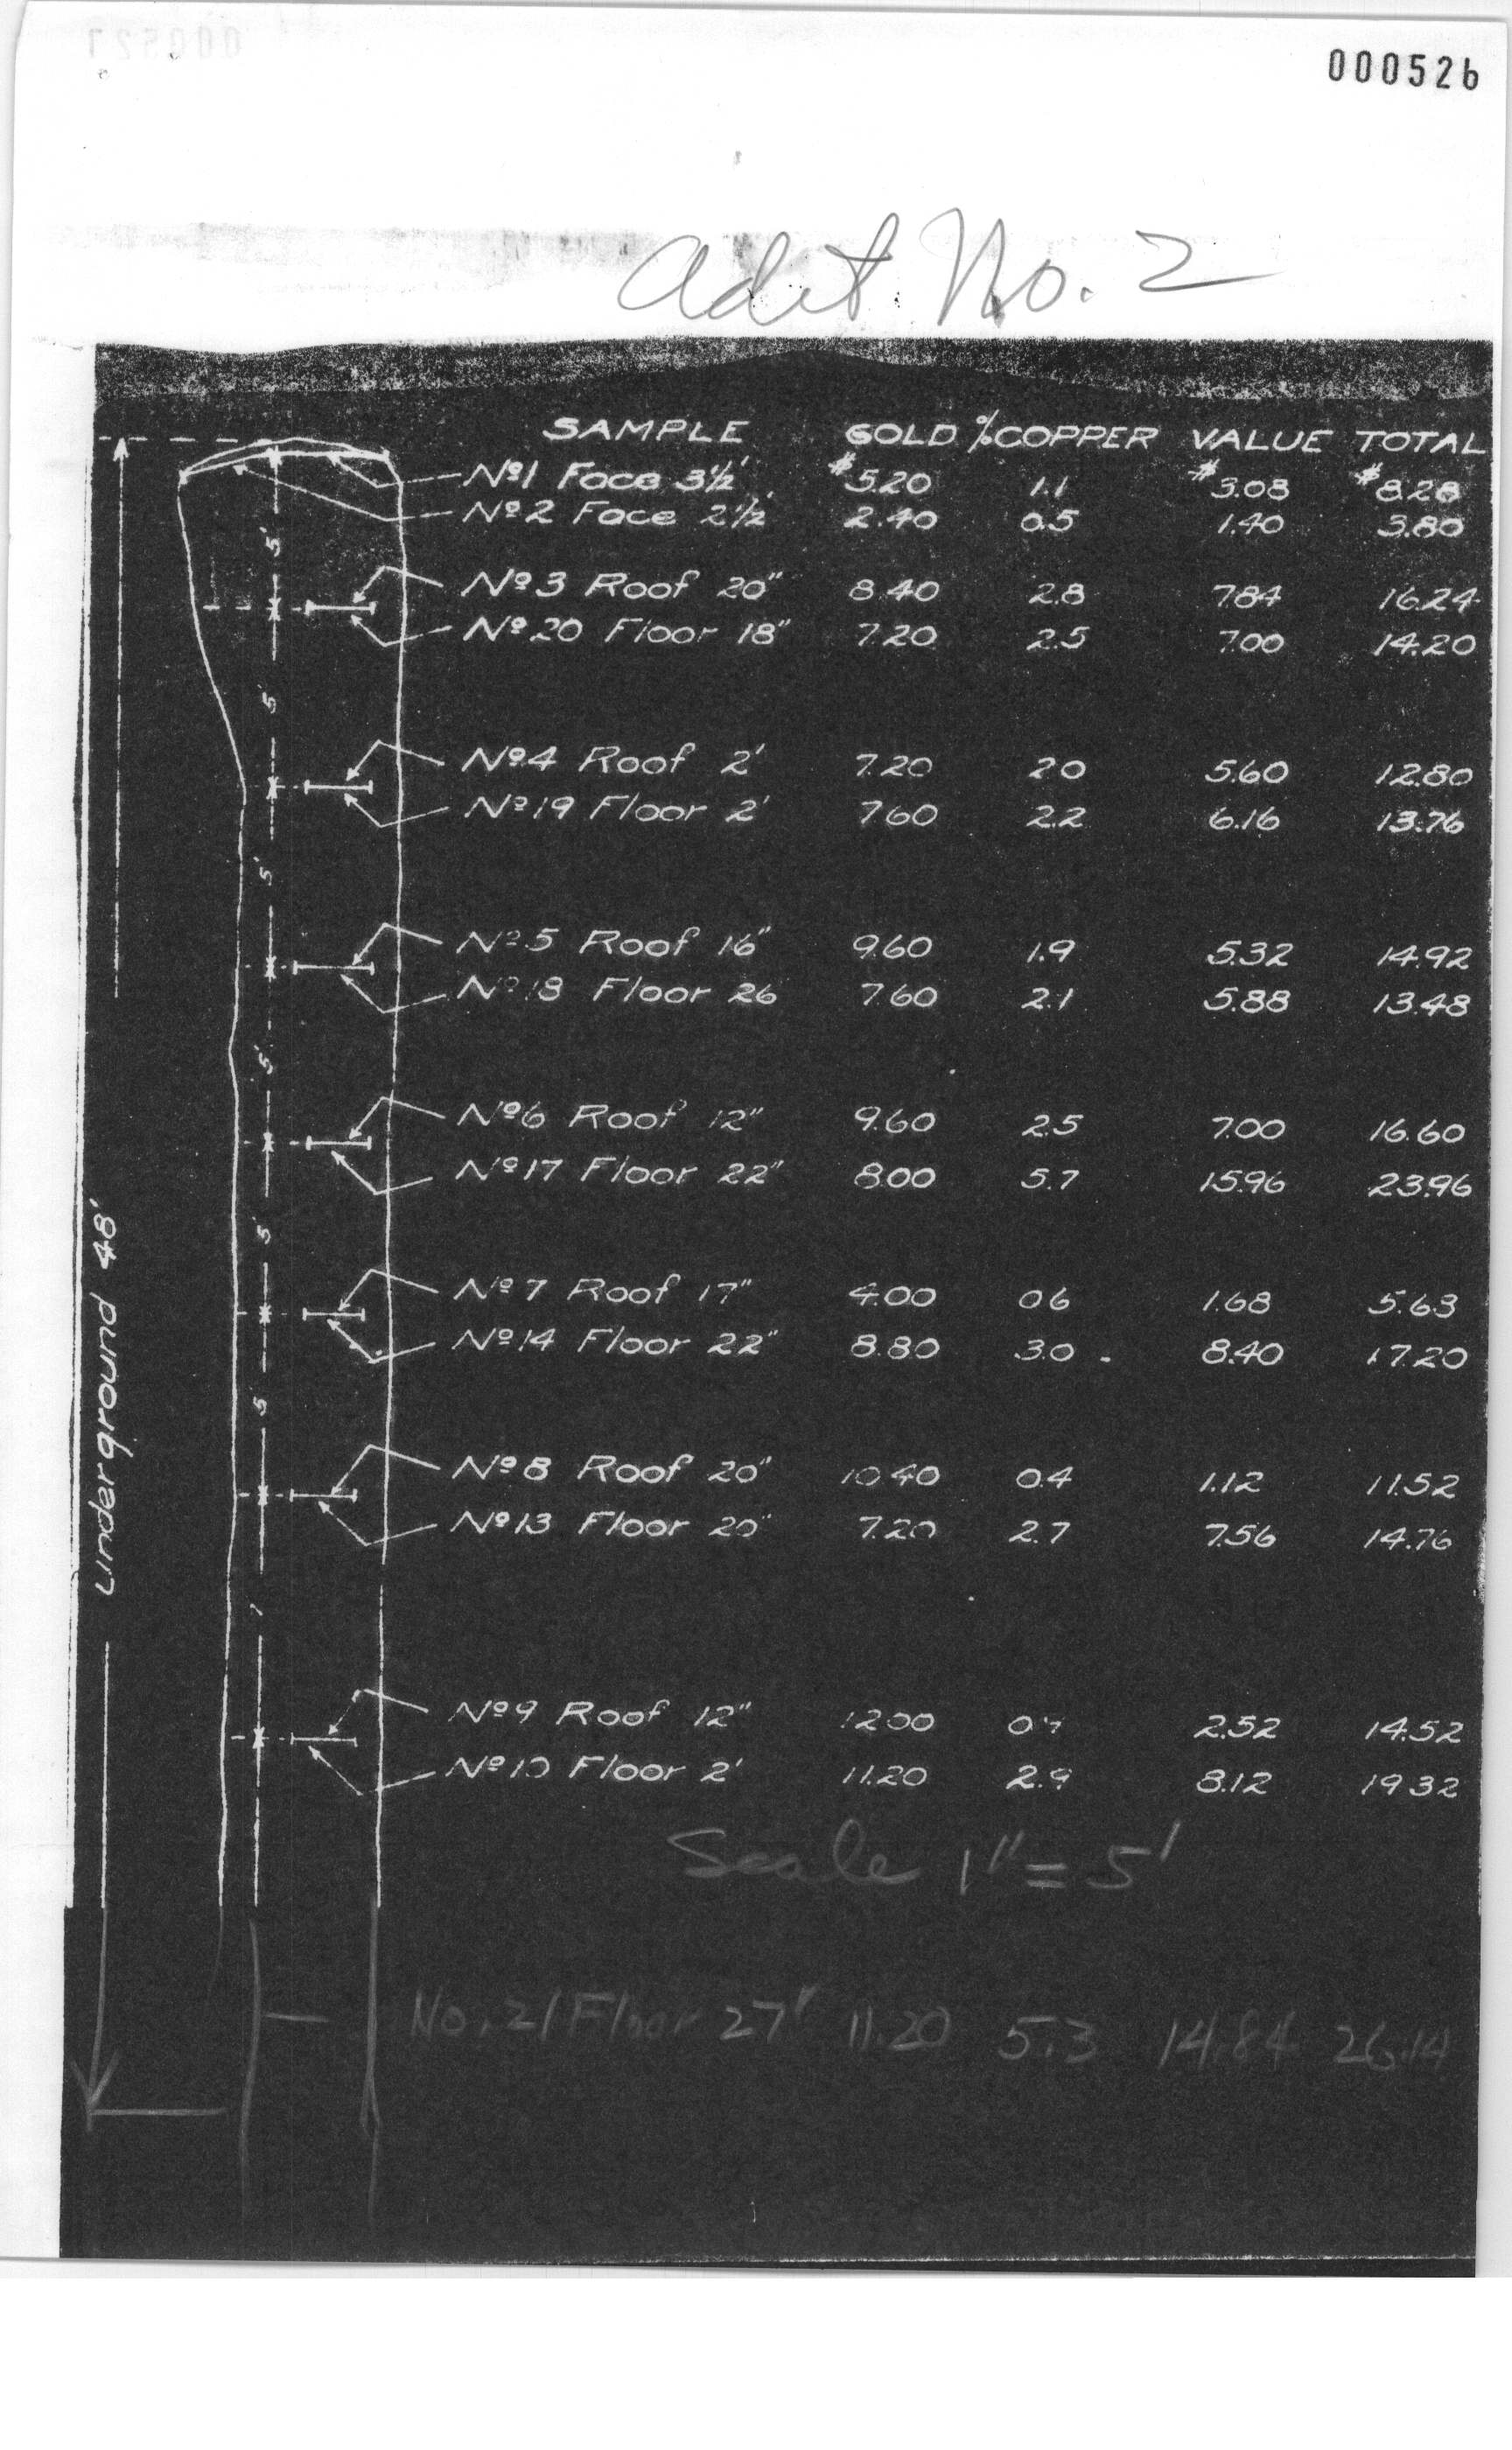 000526
Adit No. 2
SAMPLE GOLD %COPPER VALUE TOTAL
Nº1 Face 3½' $5.20 1.1 $3.08 $8.28
Nº2 Face 2½' 2.40 0.5 1.40 3.80
5'
Nº3 Roof 20" 8.40 2.8 7.84 16.24
Nº20 Floor 18" 7.20 2.5 7.00 14.20
5'
Nº4 Roof 2' 7.20 2.0 5.60 12.80
Nº19 Floor 2' 7.60 2.2 6.16 13.76
5'
Nº5 Roof 16" 9.60 1.9 5.32 14.92
Nº18 Floor 26 7.60 2.1 5.88 13.48
5'
Nº6 Roof 12" 9.60 2.5 7.00 16.60
Nº17 Floor 22" 8.00 5.7 15.96 23.96
5'
Underground 48'
Nº7 Roof 17" 4.00 0.6 1.68 5.63
Nº14 Floor 22" 8.80 3.0 8.40 17.20
5
Nº8 Roof 20" 10.40 0.4 1.12 11.52
Nº13 Floor 20" 7.20 2.7 7.56 14.76
Nº9 Roof 12" 12.00 2.52 14.52
Nº10 Floor 2' 11.20 2.9 8.12 19.32
Scale 1" = 5'
No. 21 Floor 27" 11.20 5.3 14.84 26.14